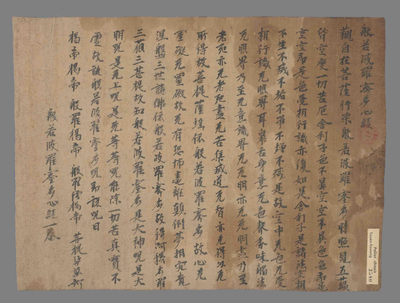 般若波羅蜜多心經
觀自在菩薩行深般若波羅蜜多時照見五蘊
皆空度一切苦厄舍利子色不異空空不異色色即是
空空即是色受想行識亦復如是舍利子是諸法空相
不生不滅不垢不淨不增不減是故空中无色无受
想行識无眼耳鼻舌身意无色聲香味觸法
无眼界乃至无意識界无无明亦无无明盡乃至无
老死亦无老死盡无苦集滅道无智亦无得以无
所得故菩提薩埵依般若波羅蜜多故心无
罣礙无罣礙故无有恐怖遠離顛倒夢想究竟
涅槃三世諸佛依般若波羅蜜多故得阿耨多羅
三藐三菩提故知般若波羅蜜多是大神呪是大
明呪是无上呪是无等等呪能除一切苦真實不
虛故說般若波羅蜜多呪即說呪曰
揭帝揭帝 般羅揭帝 般羅僧揭帝 菩提莎婆訶
般若波羅蜜多心經一卷